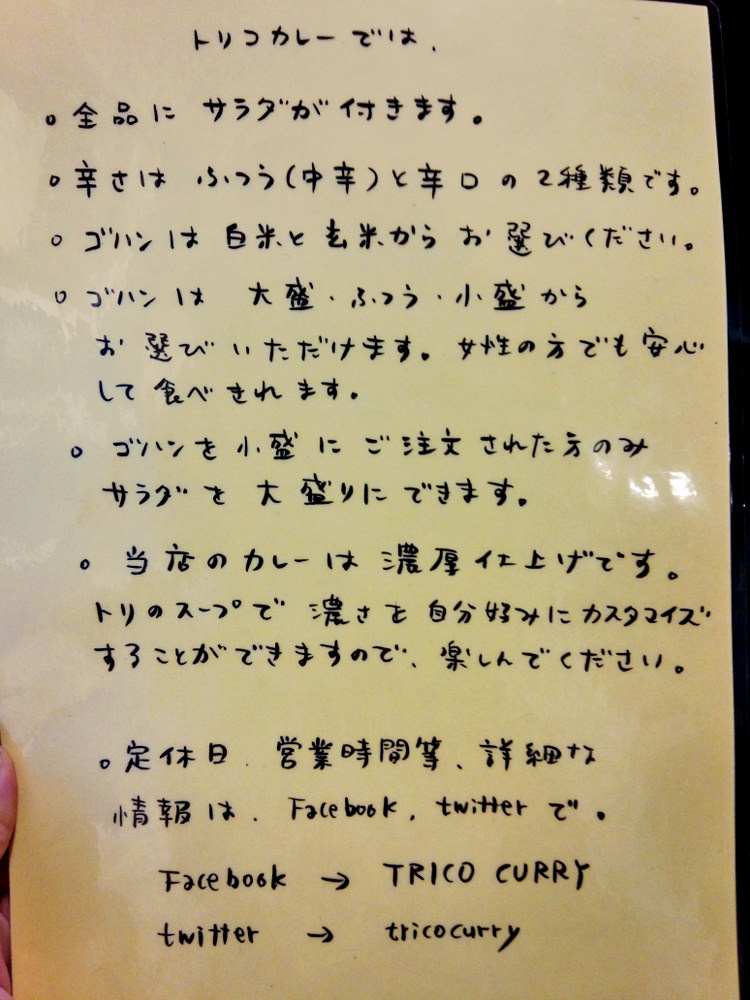 トリコカレーでは、
○全品に サラダが付きます。
○辛さは ふつう(中辛)と辛口の2種類です。
○ゴハンは白米と玄米からお選びください。
○ゴハンは 大盛・ふつう・小盛から
お選びいただけます。女性の方でも安心
して食べきれます。
○ゴハンを小盛にご注文された方のみ
サラダを大盛りにできます。
○当店のカレーは濃厚仕上げです。
トリのスープで濃さを自分好みにカスタマイズ
することができますので、楽しんでください。
○定休日、営業時間等、詳細な
情報は、Facebook, twitterで。
Facebook → TRICO CURRY
twitter → tricocurry